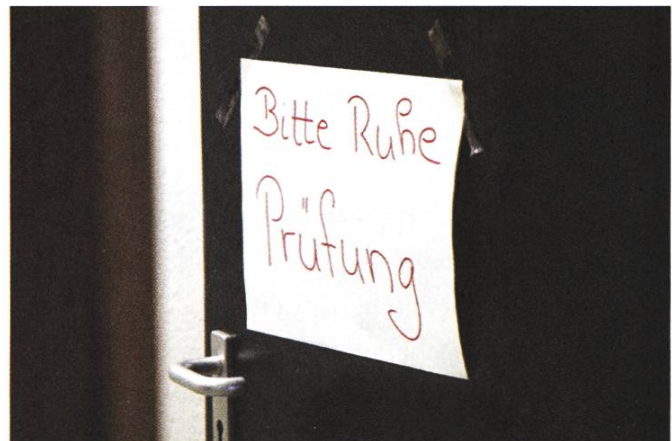 Bitte Ruhe
Prüfung